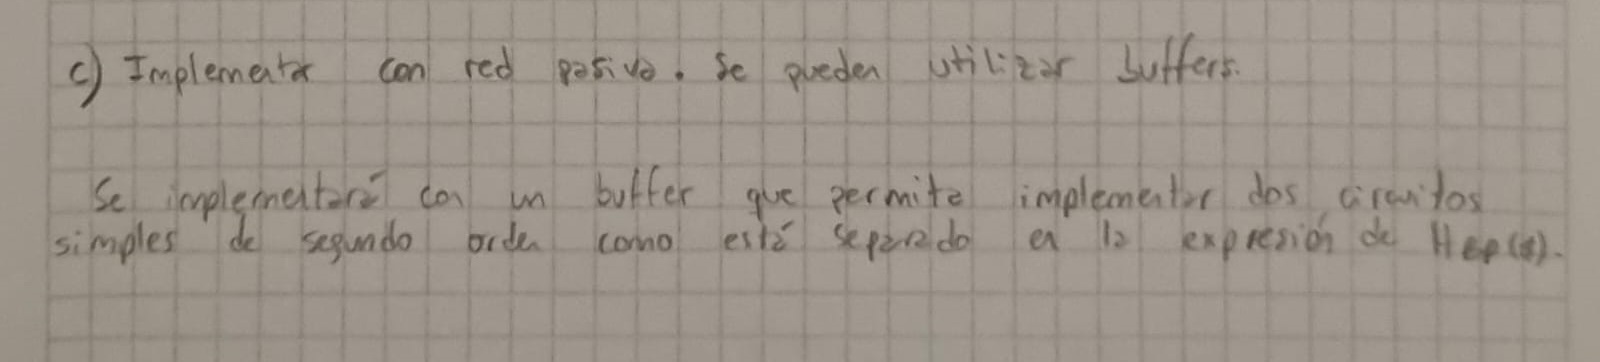 c) Implementar con red pasiva. Se pueden utilizar buffers.
Se implementará con un buffer que permita implementar dos circuitos
simples de segundo orden como está separado en la expresión de HBP(s).